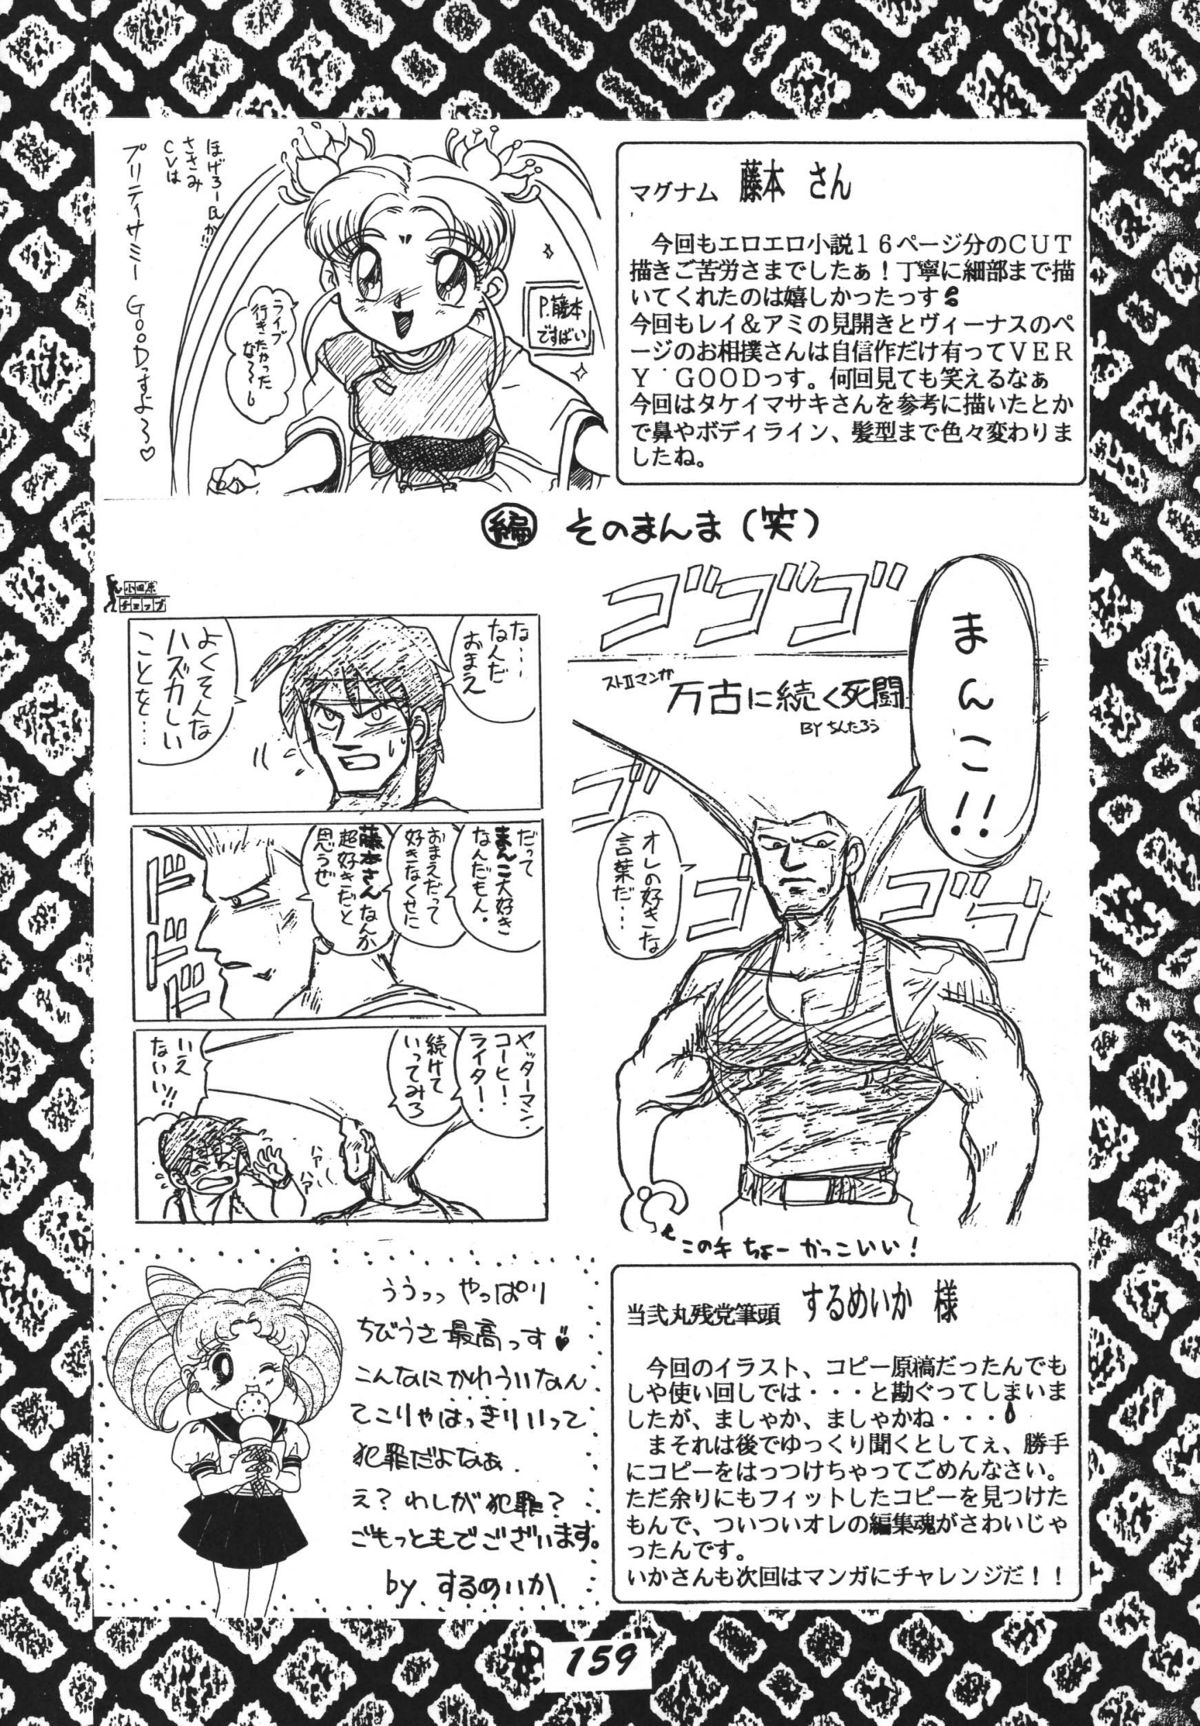 ほげろーBか!!
ささみ
CVは
プリティサミーGOODっすよ〜♡
ライブ
行きたかった
な〜〜
P.藤本
ですばい
マグナム 藤本 さん
今回もエロエロ小説16ページ分のCUT
描きご苦労さまでしたぁ！丁寧に細部まで描
いてくれたのは嬉しかったっす
今回もレイ＆アミの見開きとヴィーナスのペ
ージのお相撲さんは自信作だけ有ってVER
Y GOODっす。何回見ても笑えるなぁ
今回はタケイマサキさんを参考に描いたとか
で鼻やボディライン、髪型まで色々変わりま
したね。
編 そのまんま(笑)
小田原
チョップ
ゴゴゴゴ
まんこ!!
ストIIマンガ
万古に続く死闘
BY ちんたろう
オレの好きな
言葉だ…
ゴゴゴゴ
な…
なんだ
おまえ
よくそんな
ハズカしい
ことを…
だって
まんこ大好き
なんだもん。
おまえだって
好きなくせに
藤本さんなんか
超好きだと
思うぜ
ドドド
ヤッターマン
コーヒー
ライター
続けて
いってみろ
いえ
ないい!!
このキちょーかっこいい！
ううっっ やっぱり
ちびうさ最高っす♥
こんなにかわういなん
てこりゃはっきりいって
犯罪だよなぁ
え？わしが犯罪？
ごもっともでございます。
by するめいか
当弐丸残党筆頭 するめいか 様
今回のイラスト、コピー原稿だったんでも
しや使い回しでは・・・と勘ぐってしまいま
したが、ましゃか、ましゃかね・・・
まそれは後でゆっくり聞くとしてぇ、勝手
にコピーをはっつけちゃってごめんなさい。
ただ余りにもフィットしたコピーを見つけた
もんで、ついついオレの編集魂がさわいじゃ
ったんです。
いかさんも次回はマンガにチャレンジだ！！
159